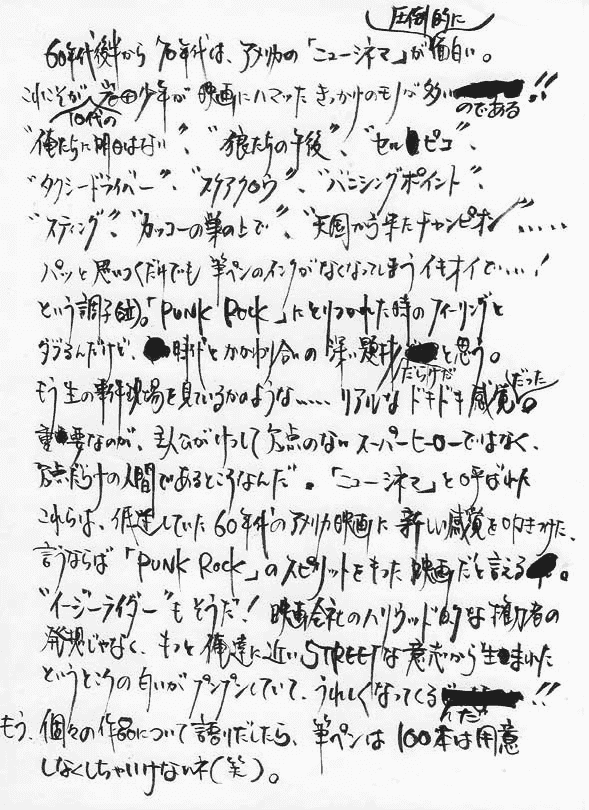 圧倒的に
60年代後半から70年代は、アメリカの「ニューシネマ」が面白い。
これこそが、岩田少年が映画にハマッたきっかけのモノが多い!!
10代の のである
"俺たちに明日はない"、"狼たちの午後"、"セルピコ"、
"タクシードライバー"、"スケアクロウ"、"バニシングポイント"、
"スティング"、"カッコーの巣の上で"、"天国から来たチャンピオン".....
パッと思いつくだけでも筆ペンのインクがなくなってしまうイキオイで....!
という調子。「PUNK ROCK」にとりつかれた時のフィーリングと
ダブるんだけど、時代とかかわり合いの深い題材 と思う。
だらけだ だった
もう生の事件現場を見ているかのような.....リアルなドキドキ感覚。
重要なのが、主人公がけっして欠点のないスーパーヒーローではなく、
欠点だらけの人間であるところなんだ。「ニューシネマ」と呼ばれた
これらは、低迷していた60年代のアメリカ映画に新しい感覚を吹きつけた、
言うならば「PUNK ROCK」のスピリットをもった映画だと言える。
"イージーライダー"もそうだ!映画会社のハリウッド的な権力者の
発想じゃなく、もっと俺達に近いSTREETな意志から生まれた
というところの匂いがプンプンしていて、うれしくなってくる!!
んだな
もう、個々の作品について語りだしたら、筆ペンは100本は用意
しなくしちゃいけないネ(笑)。